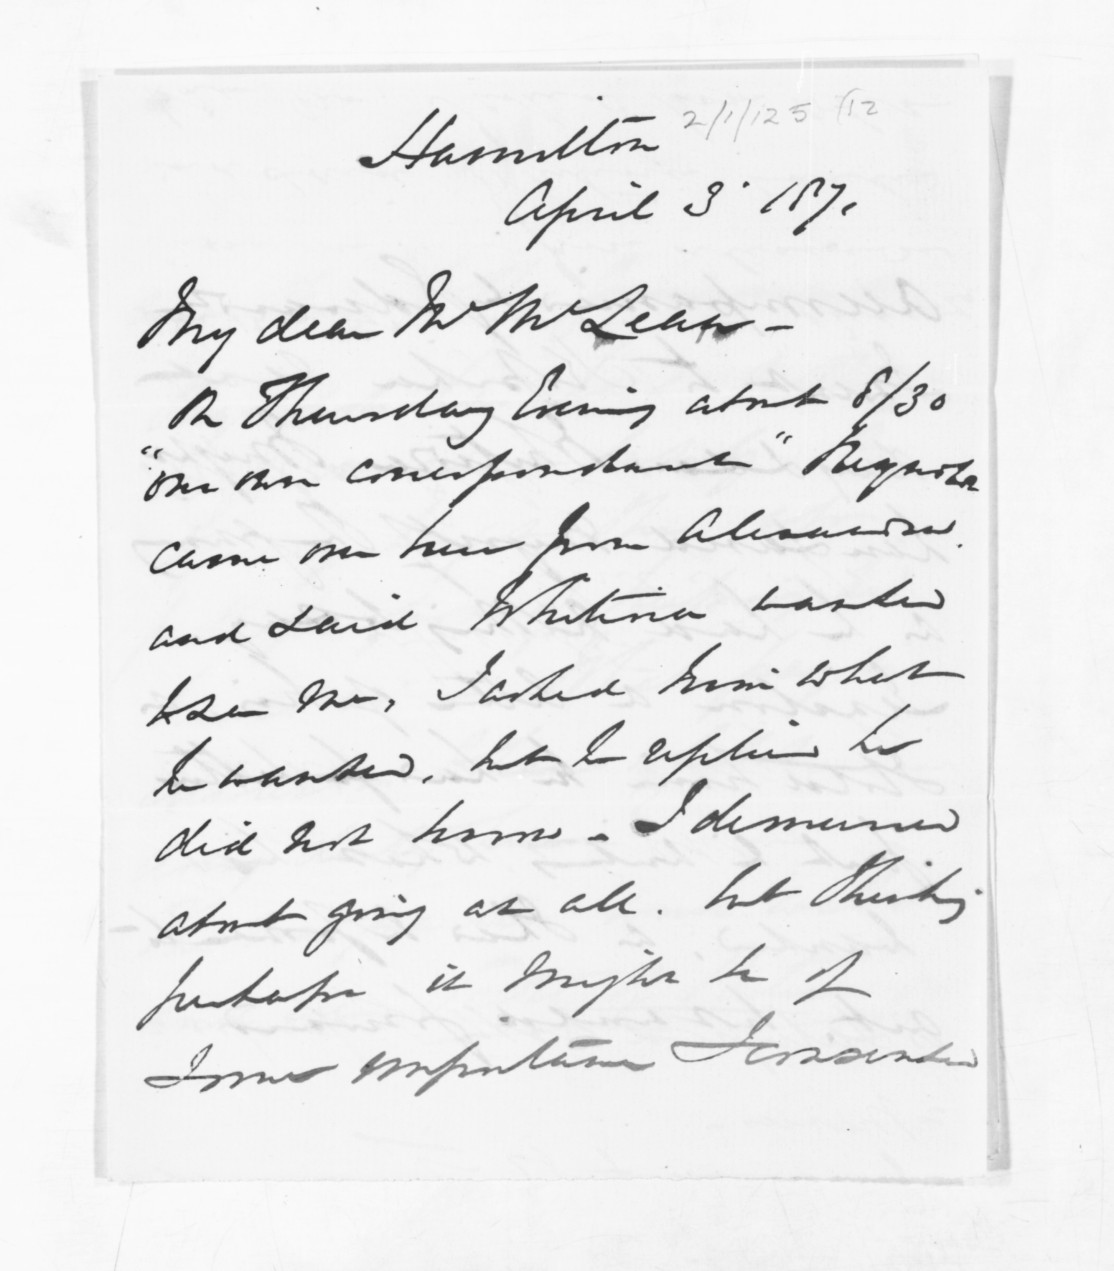 2/1/125 /12
Hamilton
April 3. 187.
My dear Mr McLean -
On Thursday Evening about 8/30
"our own correspondent" Reynolds
came over here from Alexandra.
and said Whitiora wanted
to see me, I asked him what
he wanted, but he replied he
did not know - I demurred
about going at all. but thinking
perhaps it might be of
some importance I consented